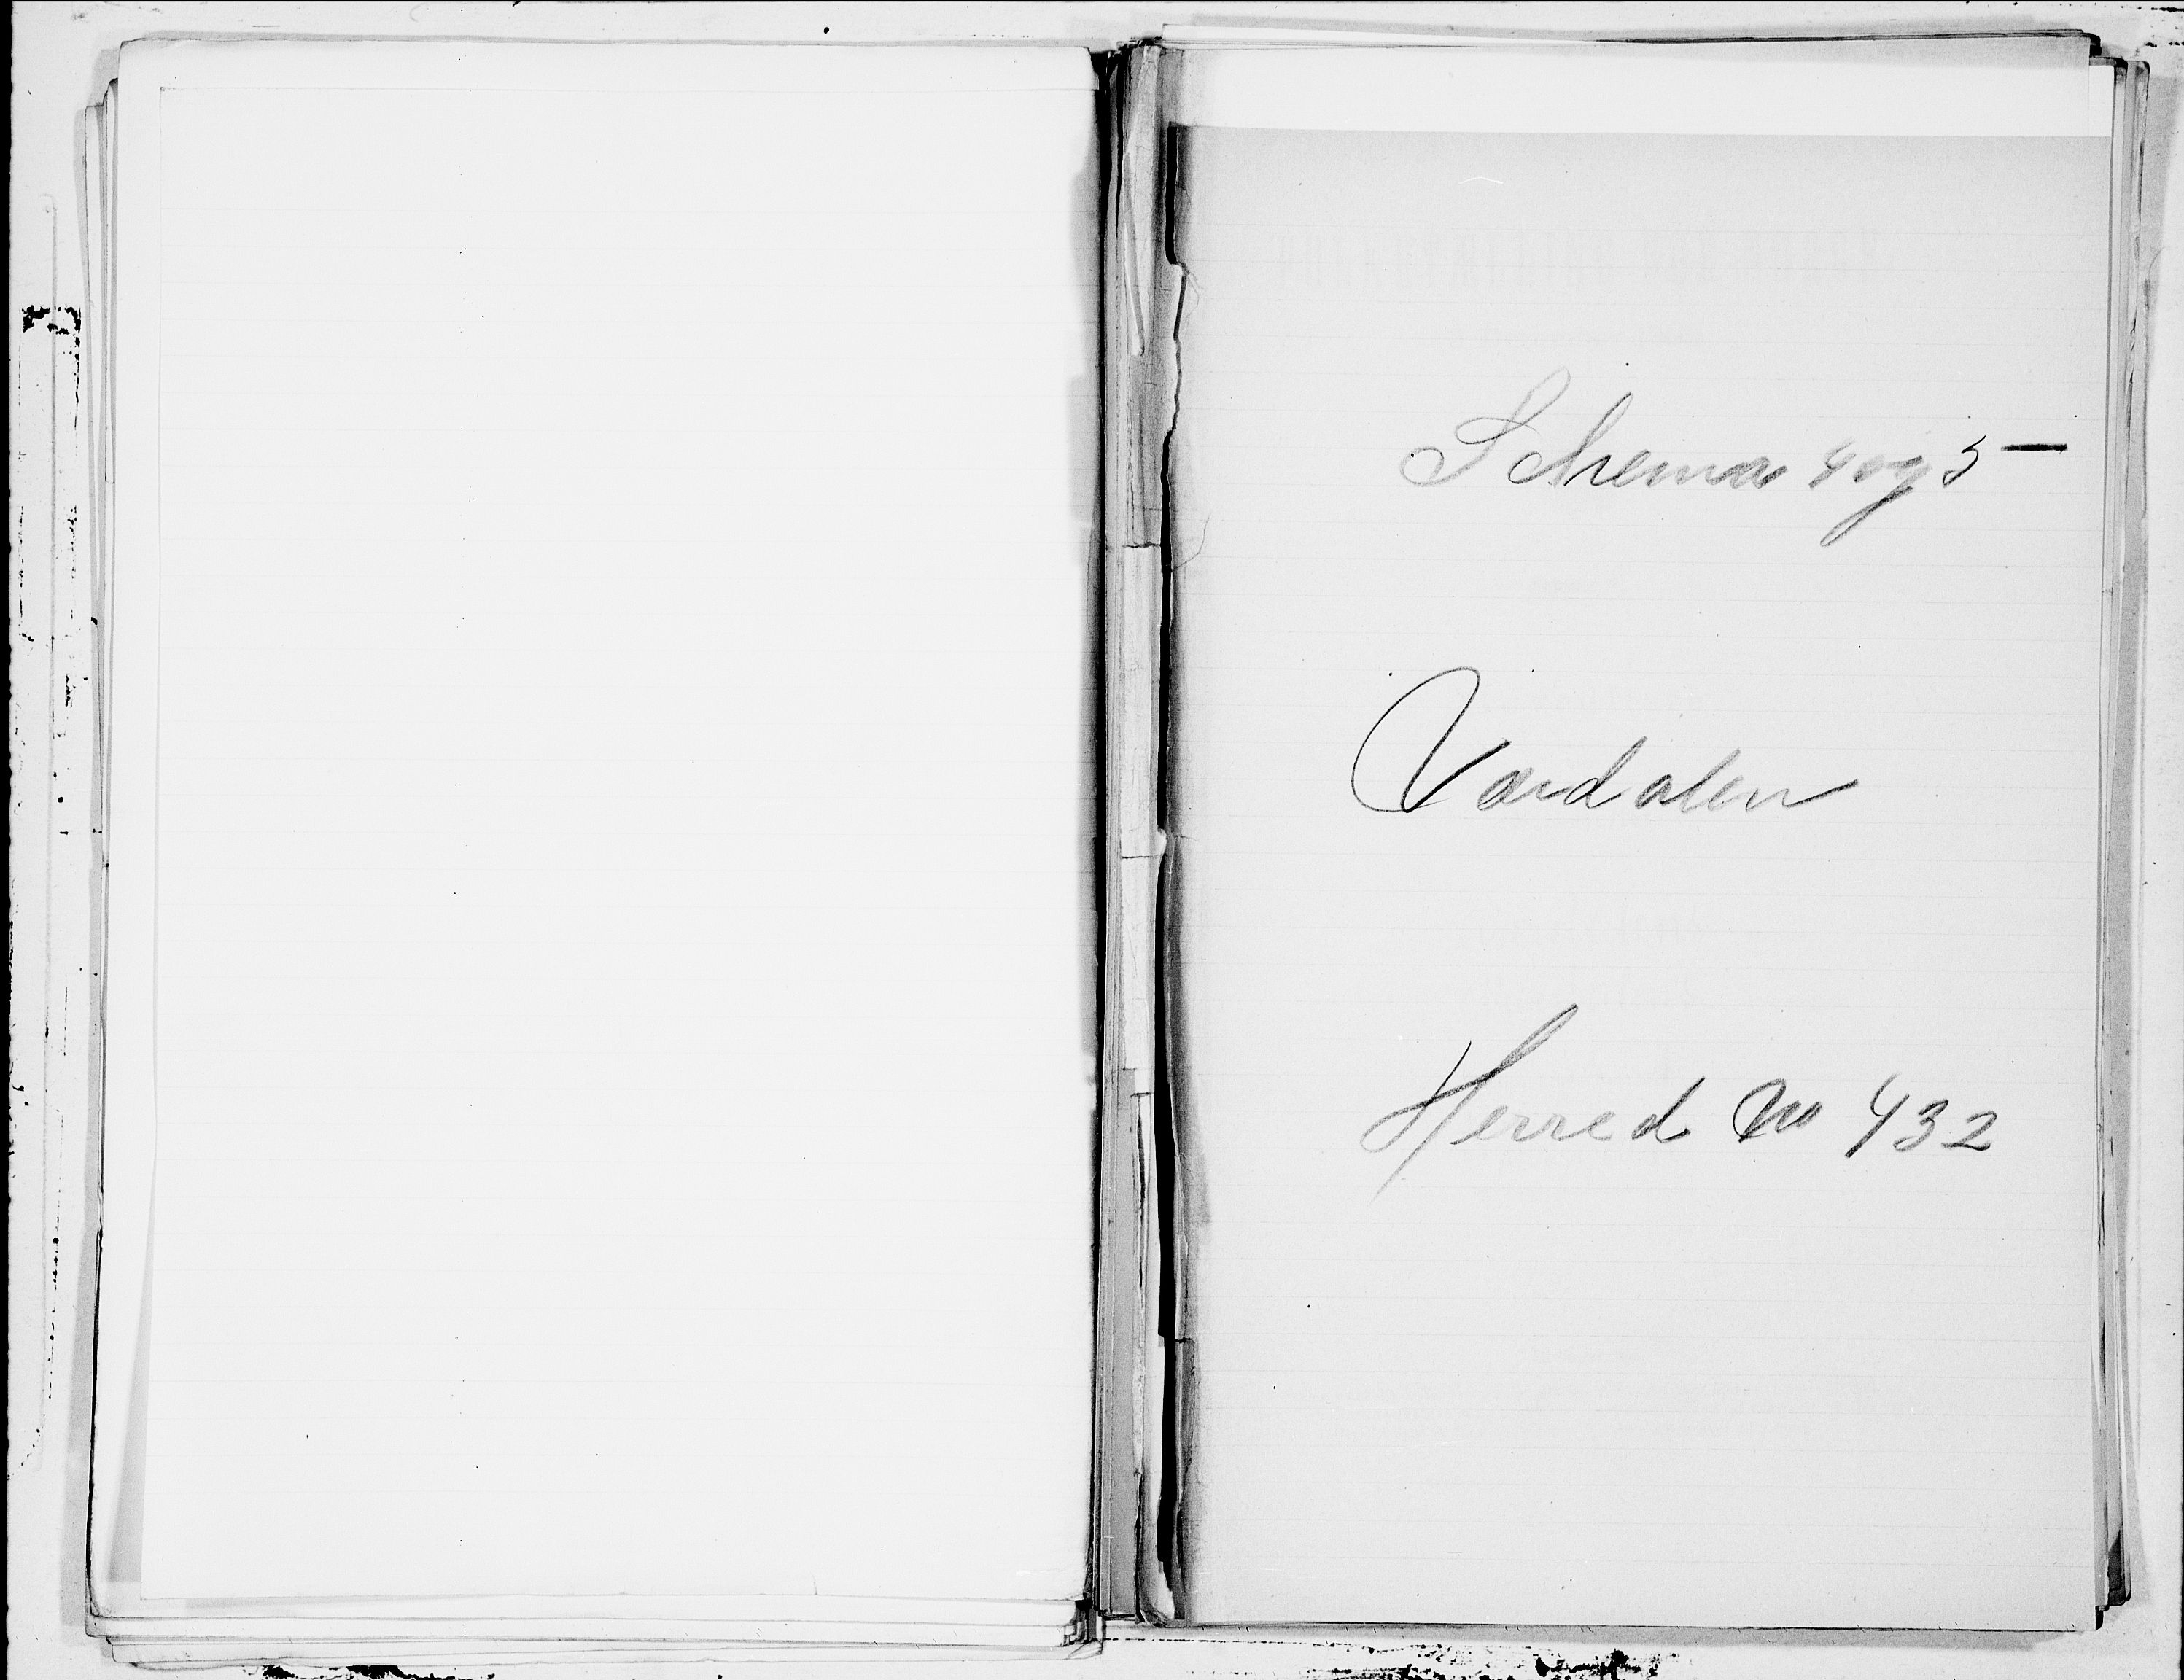 Schema 4 og 5
Værdalen
Herred No 432